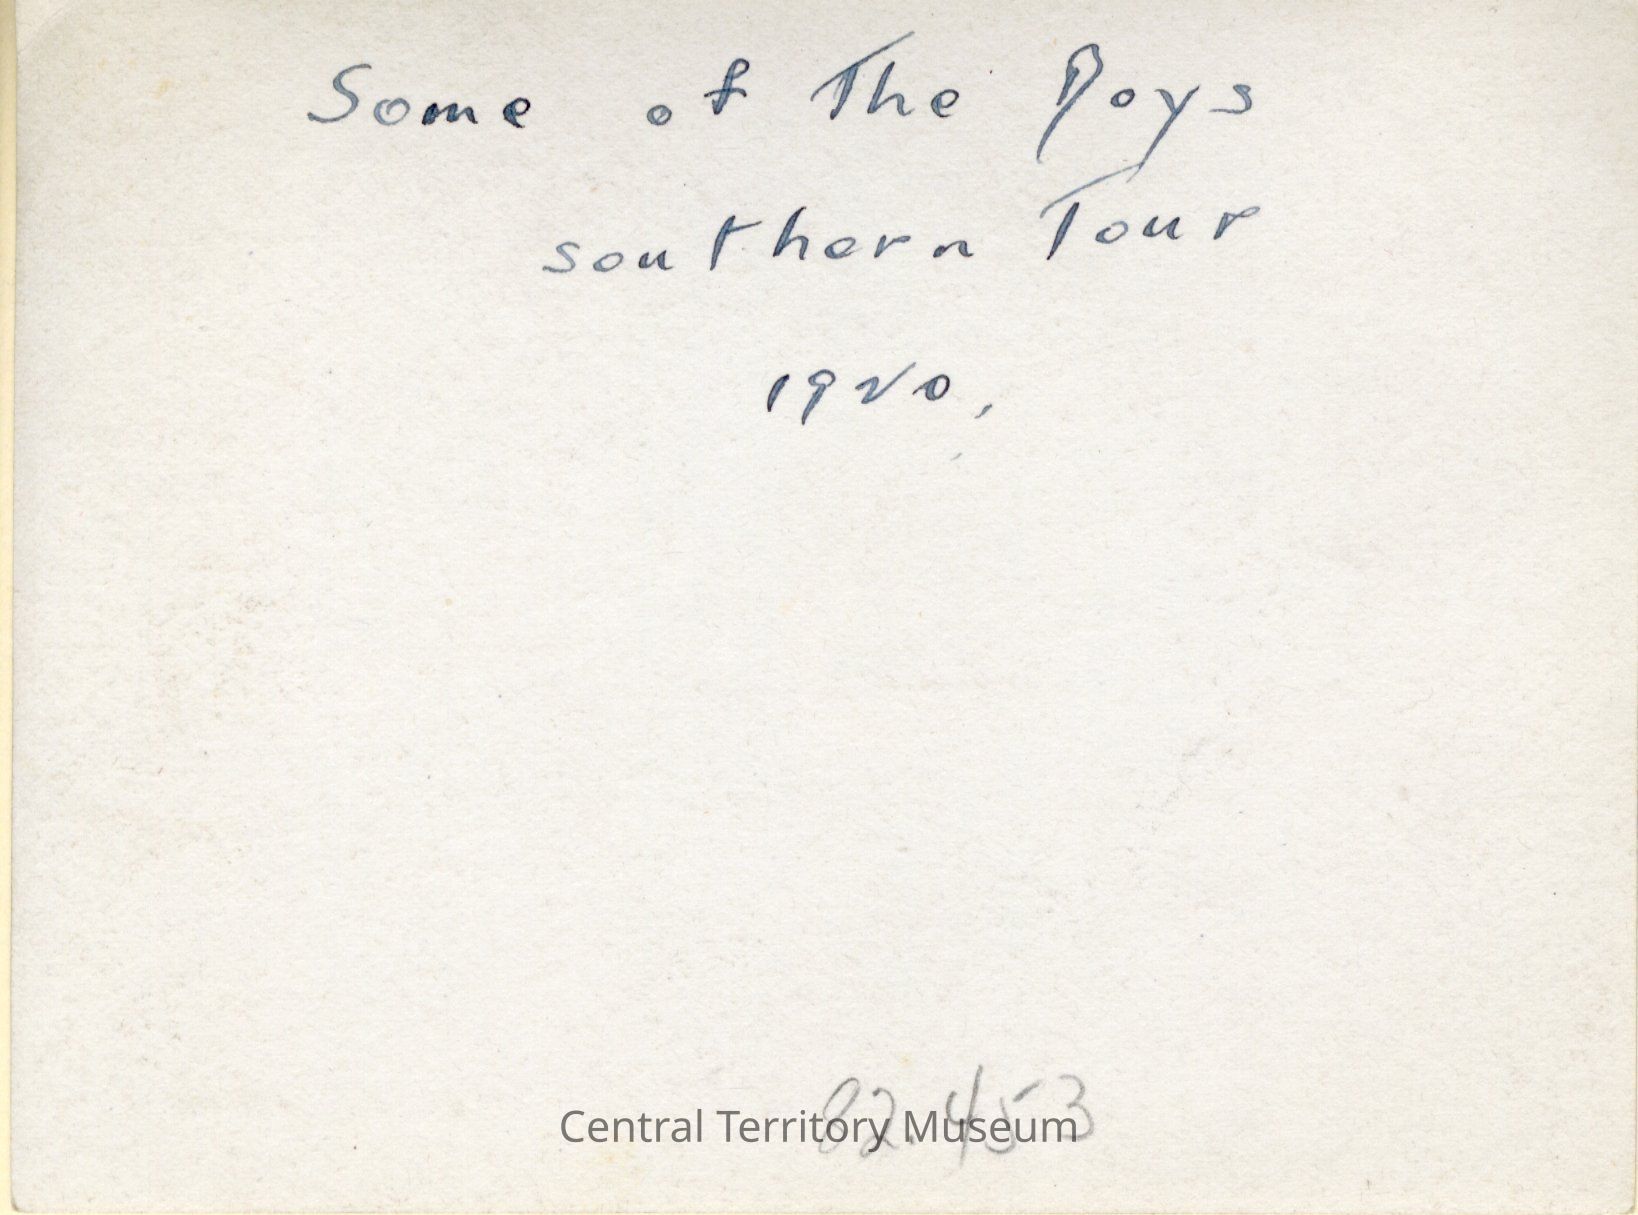 Some of The Boys
southern Tour
1920,
82.453
Central Territory Museum